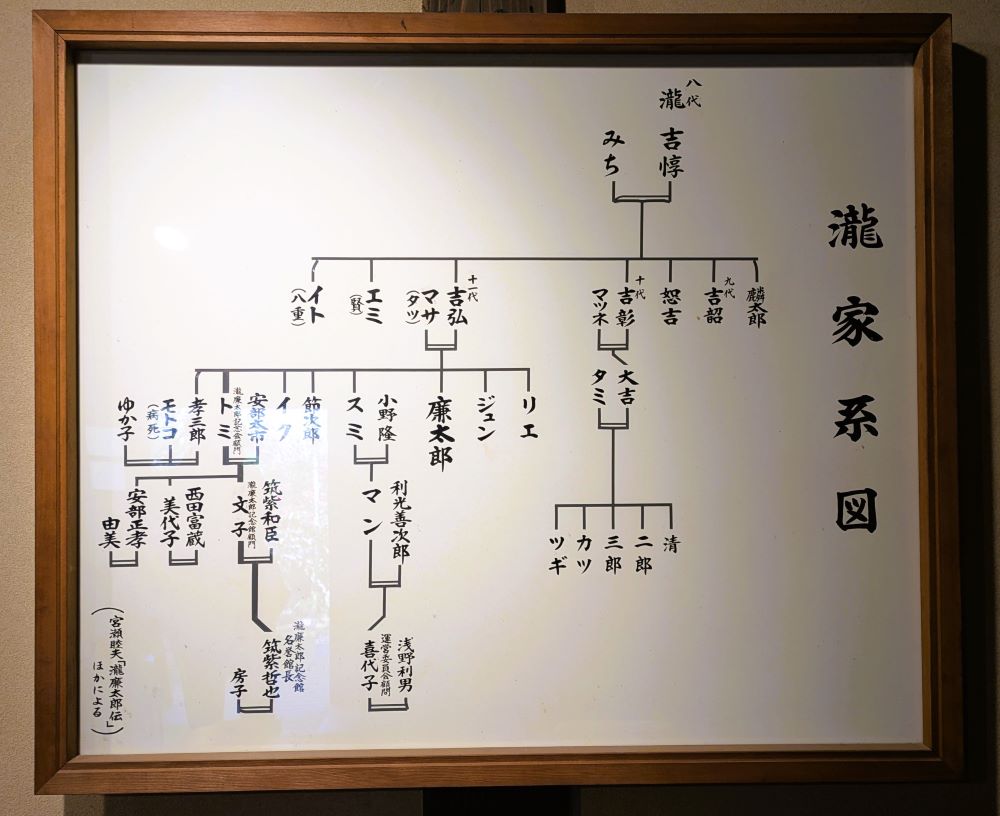 瀧家系図
八代
瀧 吉惇
みち
麟太郎
九代
吉韶
恕吉
十代
吉彰
マツネ
十一代
吉弘
マサ
（タツ）
エミ
（賢）
イト
（八重）
大吉
タミ
清
二郎
三郎
カツ
ツギ
リエ
ジュン
廉太郎
小野 隆
スミ
節次郎
イク
安部太市
瀧廉太郎記念会顧問
トミ
孝三郎
モトコ
（病死）
ゆか子
利光善次郎
マン
筑紫和臣
瀧廉太郎記念館顧問
文子
西田富蔵
美代子
安部正孝
由美
浅野利男
運営委員会顧問
喜代子
瀧廉太郎記念館
名誉館長
筑紫哲也
房子
（宮瀬睦夫「瀧廉太郎伝」
ほかによる）